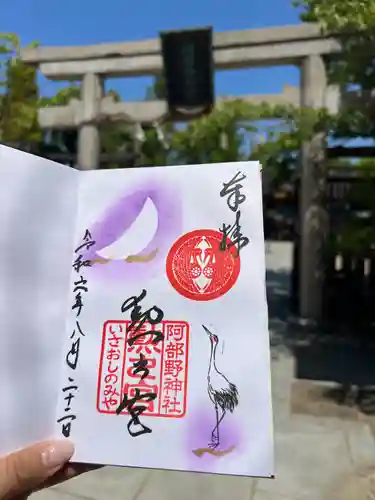 奉拝
阿部野神社
勲之宮
いさおしのみや
令和六年八月二十二日